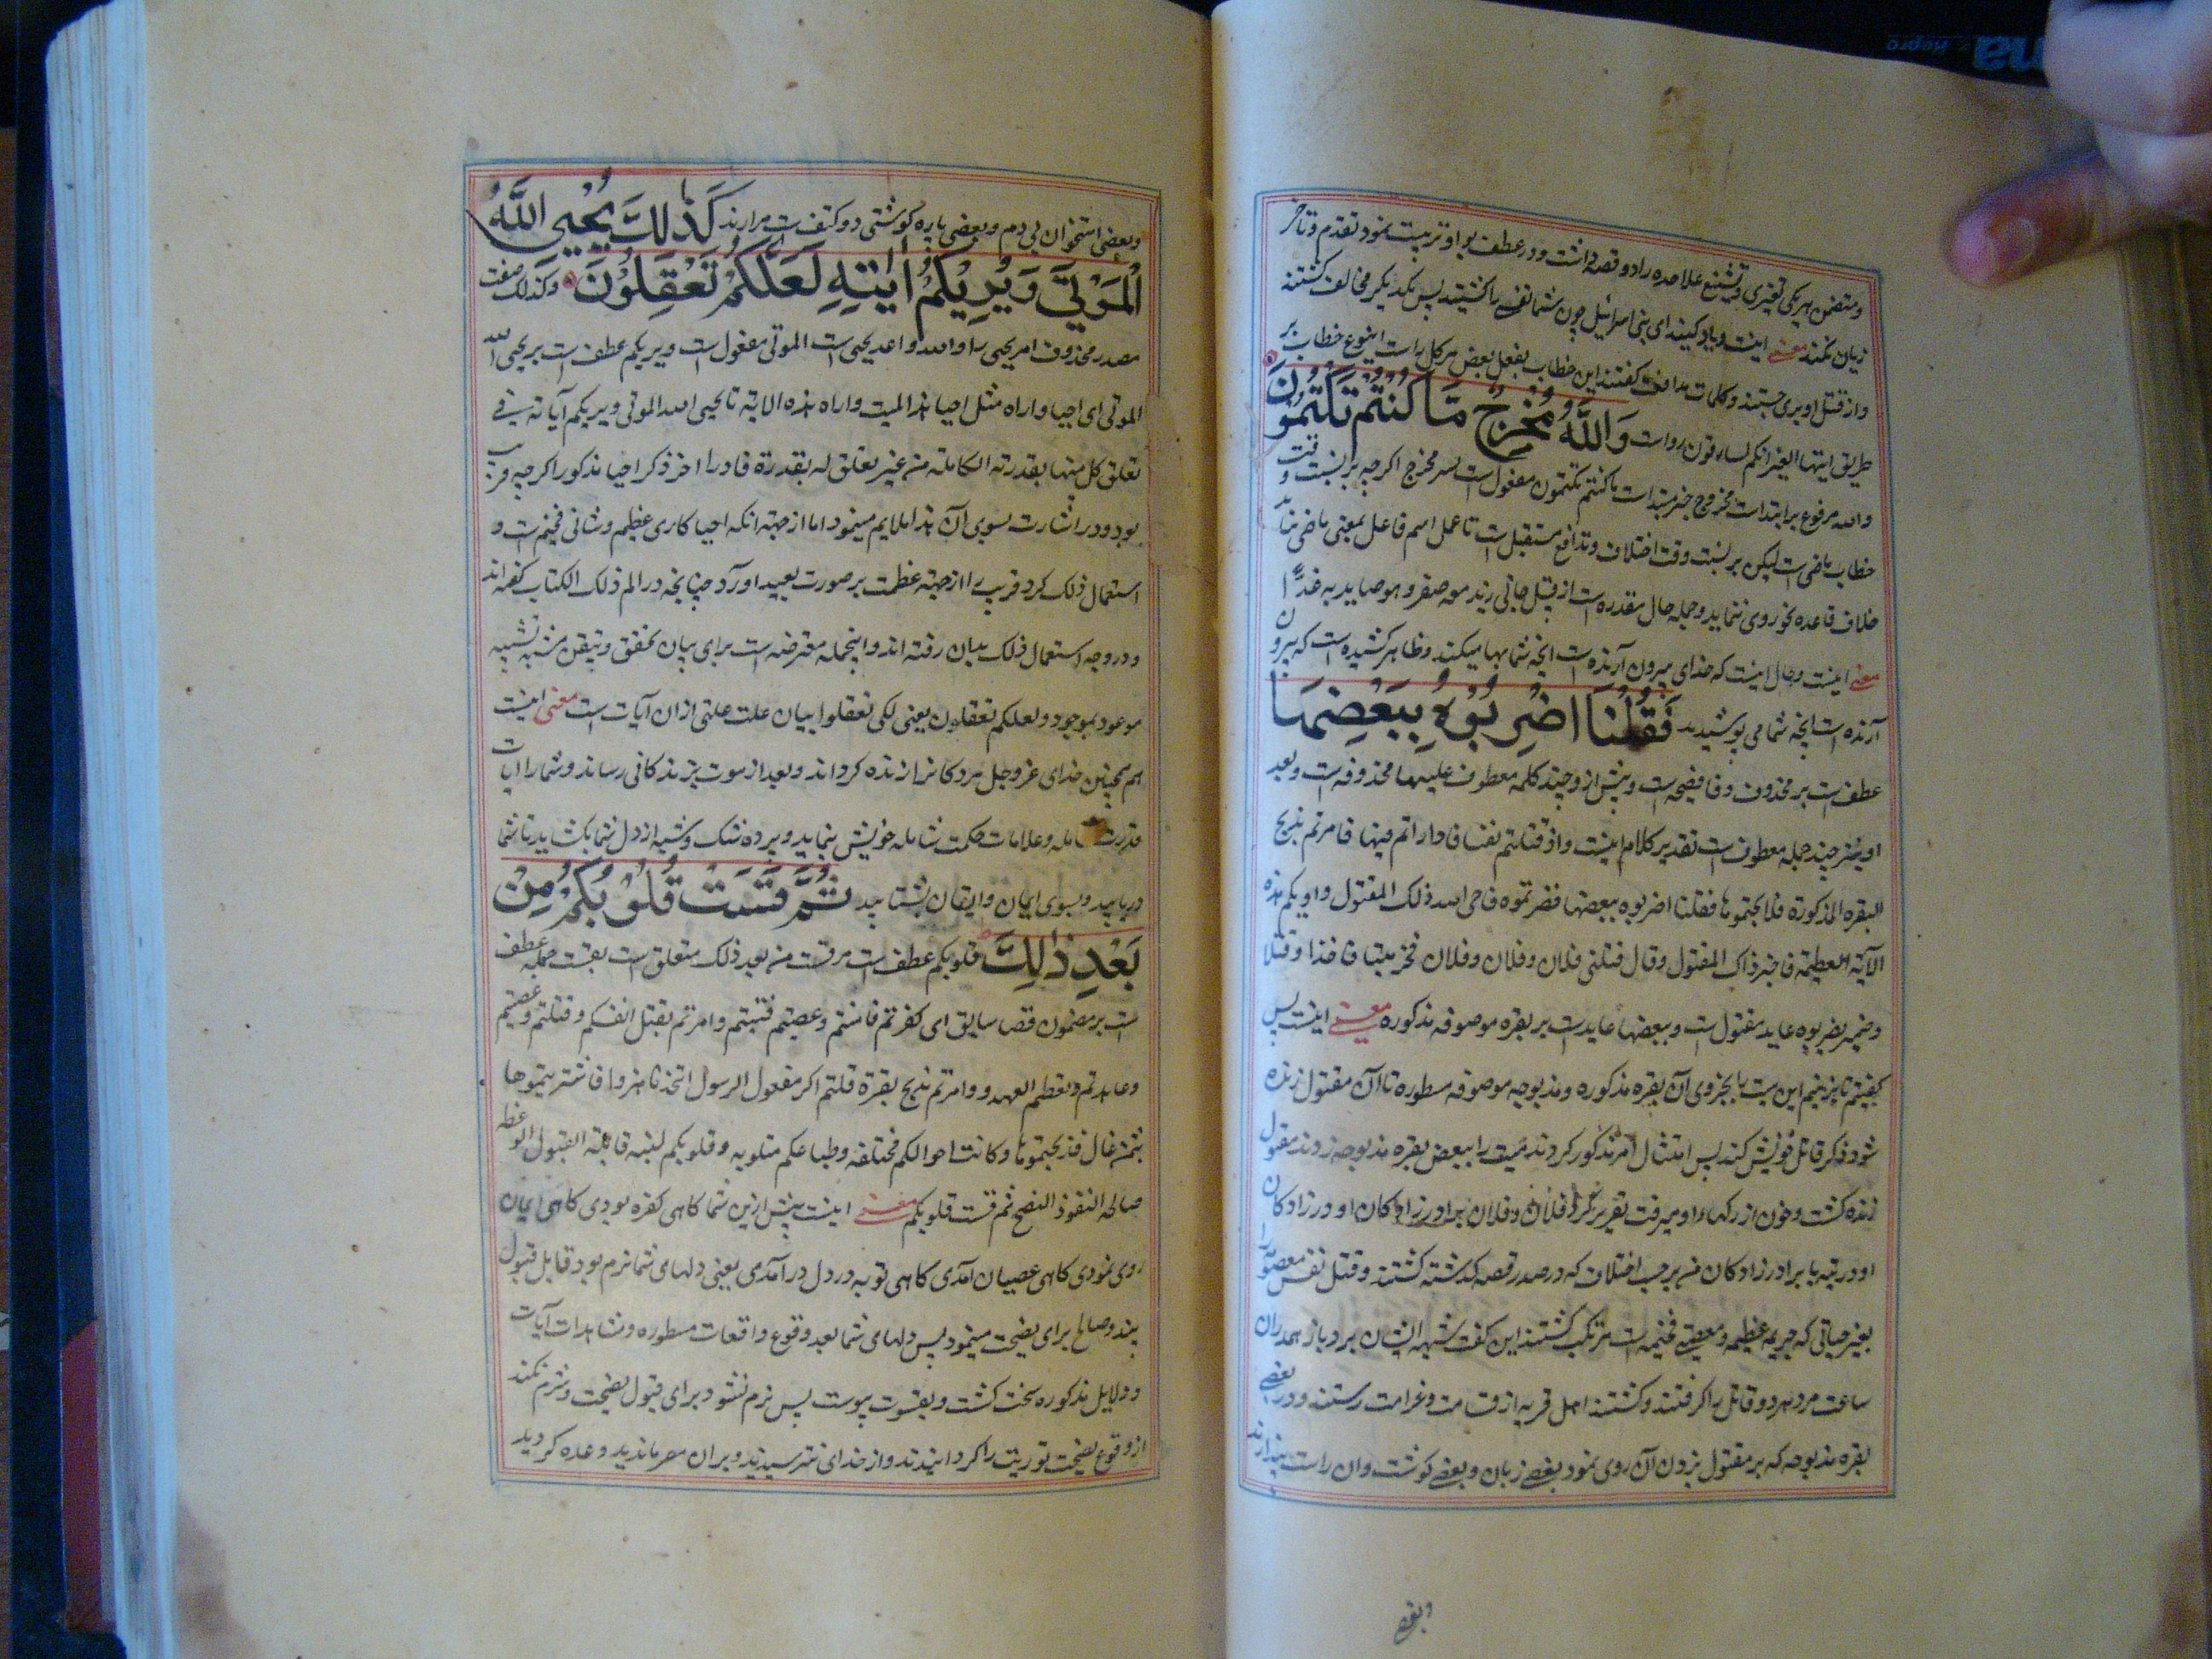 و متضمن هر یکی تعییری و تشنیع علاحده را دو قصه داشت و در عطف بواو ترتیب نمود تقدم و تاخر
زیان نکند معنی اینست و یاد کنید ای بنی اسرائیل چون شما نفسی را کشتید پس یکدیگر مخالف کشتند
و از قتل او بری جستند و کلمات مدافعت کفتند این خطاب بفعل بعض مر کل راست اینوع خطاب بر
طریق ایتها العیر انکم لسارقون رواست وَاللّٰهُ مُخْرِجٌ مَّا كُنْتُمْ تَكْتُمُوْنَ
والله مرفوع بر ابتداست مخرج خبر مبتداست ما کنتم تکتمون مفعول است لمخرج اکرچه بر نسبت وقت
خطاب ماضی است لیکن بر نسبت وقت اختلاف و تدافع مستقبل است تا عمل اسم فاعل بمعنی ماضی نباید و
خلاف قاعده نحو روی ننماید و جمله حال مقدره است از قبل جانی زید معه صقر و هو صاید به غدًا
معنی اینست و حال اینست که خدای بیرون آرنده است انچه شما بها میکند و ظاهر کشیده است که بیرون
آرنده است انچه شما می پوشیدید فَقُلْنَا اضْرِبُوْهُ بِبَعْضِهَا
عطف است بر محذوف و فا فصیحه است و پیش از و چند کلمه معطوف علیها محذوفه است و بعد
او نیز چند جمله معطوف است تقدیر کلام اینست و اذ قتلتم نفسا فاداراتم فیها فامرتم بذبح
البقره المذکورة فذبحتموها فقلنا اضربوه ببعضها فضربتموه فاحی الله ذلک المقتول و اویکم هذه
الآیة العظیمة فاخبر ذاک المقتول و قال قتلنی فلان و فلان و فلان فخر میتا فاخذا و قتلا
و ضمیر بضربوه عاید مقتول است و ببعضها عایدست بر بقره موصوفه مذکوره معنی اینست پس
کفتیم تا بزنیم این میت را بجزوی آن بقره مذکوره و مذبوحه موصوفه مسطوره تا آن مقتول زنده
شود و ذکر قاتل خویش کند پس امتثال امر مذکور کردند میت را ببعض بقره مذبوحه زدند مقتول
زنده کشت و خون از رکهاء او میرفت تقریر کرد فلان و فلان برادرزادکان او در زادکان
او در تپه یا برادرزادکان من بر حسب اختلاف که در صدر قصه کذشته کشتند و قتل نفس معصوم را
بغیر حیاتی که جریمه عظیمه و معصیتی فخیمه است مرتکب کشتند این کفت شبهه ایشان بر دباز همدران
ساعت مرد هر دو قاتل را کرفتند و کشتند اهل قریه از قسامت و غرامت رستند و در بعضی
بقره مذبوحه که بر مقتول بزدن آن روی نمود بعضی زبان و بعضی کوشت ران راست پندارند
وبعضی
و بعضی استخوان بی دم و بعضی پاره کوشتی دو کتف است مرارند كَذٰلِكَ يُحْيِي اللّٰهُ
الْمَوْتٰى وَيُرِيْكُمْ اٰيٰتِهٖ لَعَلَّكُمْ تَعْقِلُوْنَ و کذلک صفت
مصدر محذوف امر یحیی را و الله و اعد یحیی است الموتی مفعول است و یریکم عطف است بر یحیی الله
الموتی ای احیا و اراه مثل احیا هذا المیت و اراه هذه الایة تا یحیی الله الموتی و یریکم آیاته فی
تعلق کل منها بقدرته الکاملة من غیر تعلق له بقدرة قادر اخر ذکر احیا مذکور اکرچه قریب
بود و در اشارت بسوی آن هذا ملایم مینمود اما از جهة انکه احیا کاری عظیم و شانی فخیم است و
استعمال ذلک کرد قریب را از جهة عظمت بر صورت بعید اورد چنانچه در الم ذلک الکتاب کفته اند
و در وجه استعمال ذلک بدان رفته اند و اینجمله معترضه است برای بیان تحقق و تیقن مشبه تشبیه
موعود بموجود و لعلکم تعقلون یعنی لکی تعقلوا بیان علت علتی از ان آیات است معنی اینست
هم همچنین خدای عز و جل مردکانرا زنده کرداند و بعد از موت بزندکانی رساند و شما را ایات
قدرت کامله و علامات حکمت شامله خویش بنماید و پرده شک و شبه از دل شما بکشاید تا شما
دریابید و بسوی ایمان و ایقان بشتابید ثُمَّ قَسَتْ قُلُوْبُكُمْ مِنْ
بَعْدِ ذٰلِكَ قلوبکم عطف است مر قست من بعد ذلک متعلق است بقست جمله عطف
است بر مضمون قصا سابق ای کفرتم فامنتم و عصیتم فتبتم و امرتم بقتل انفسکم و قتلتم و عصیتم
و عاهدتم و نقضتم العهد و و امرتم بذبح بقرة قلتم اکر مفعول الرسول اتتخذنا هزوا فاشتریتموها
بثمن غال فذبحتموها و کانت احوالکم مختلفه و طباعکم متلوبه و قلوبکم لینة قابلة القبول الوعظ
صالحة النفوذ النصح ثم قست قلوبکم معنی اینست پیش ازین شما کاهی کفره بودی کاهی ایمان
روی نمودی کاهی عصیان آمدی کاهی توبه در دل درآمدی یعنی دلهای شما نرم بود قابل قبول
پند و صالح برای نصیحت مینمود پس دلهای شما بعد وقوع واقعات مسطوره و مشاهدات آیات
و دلایل مذکوره سخت کشت و بقسوت پیوست پس نرم نشود برای قبول نصیحت و شرم نکند
از وقوع فضیحت توریت را کردانیدند و از خدای نترسیدید و بران مصر ماندید و عده کردید